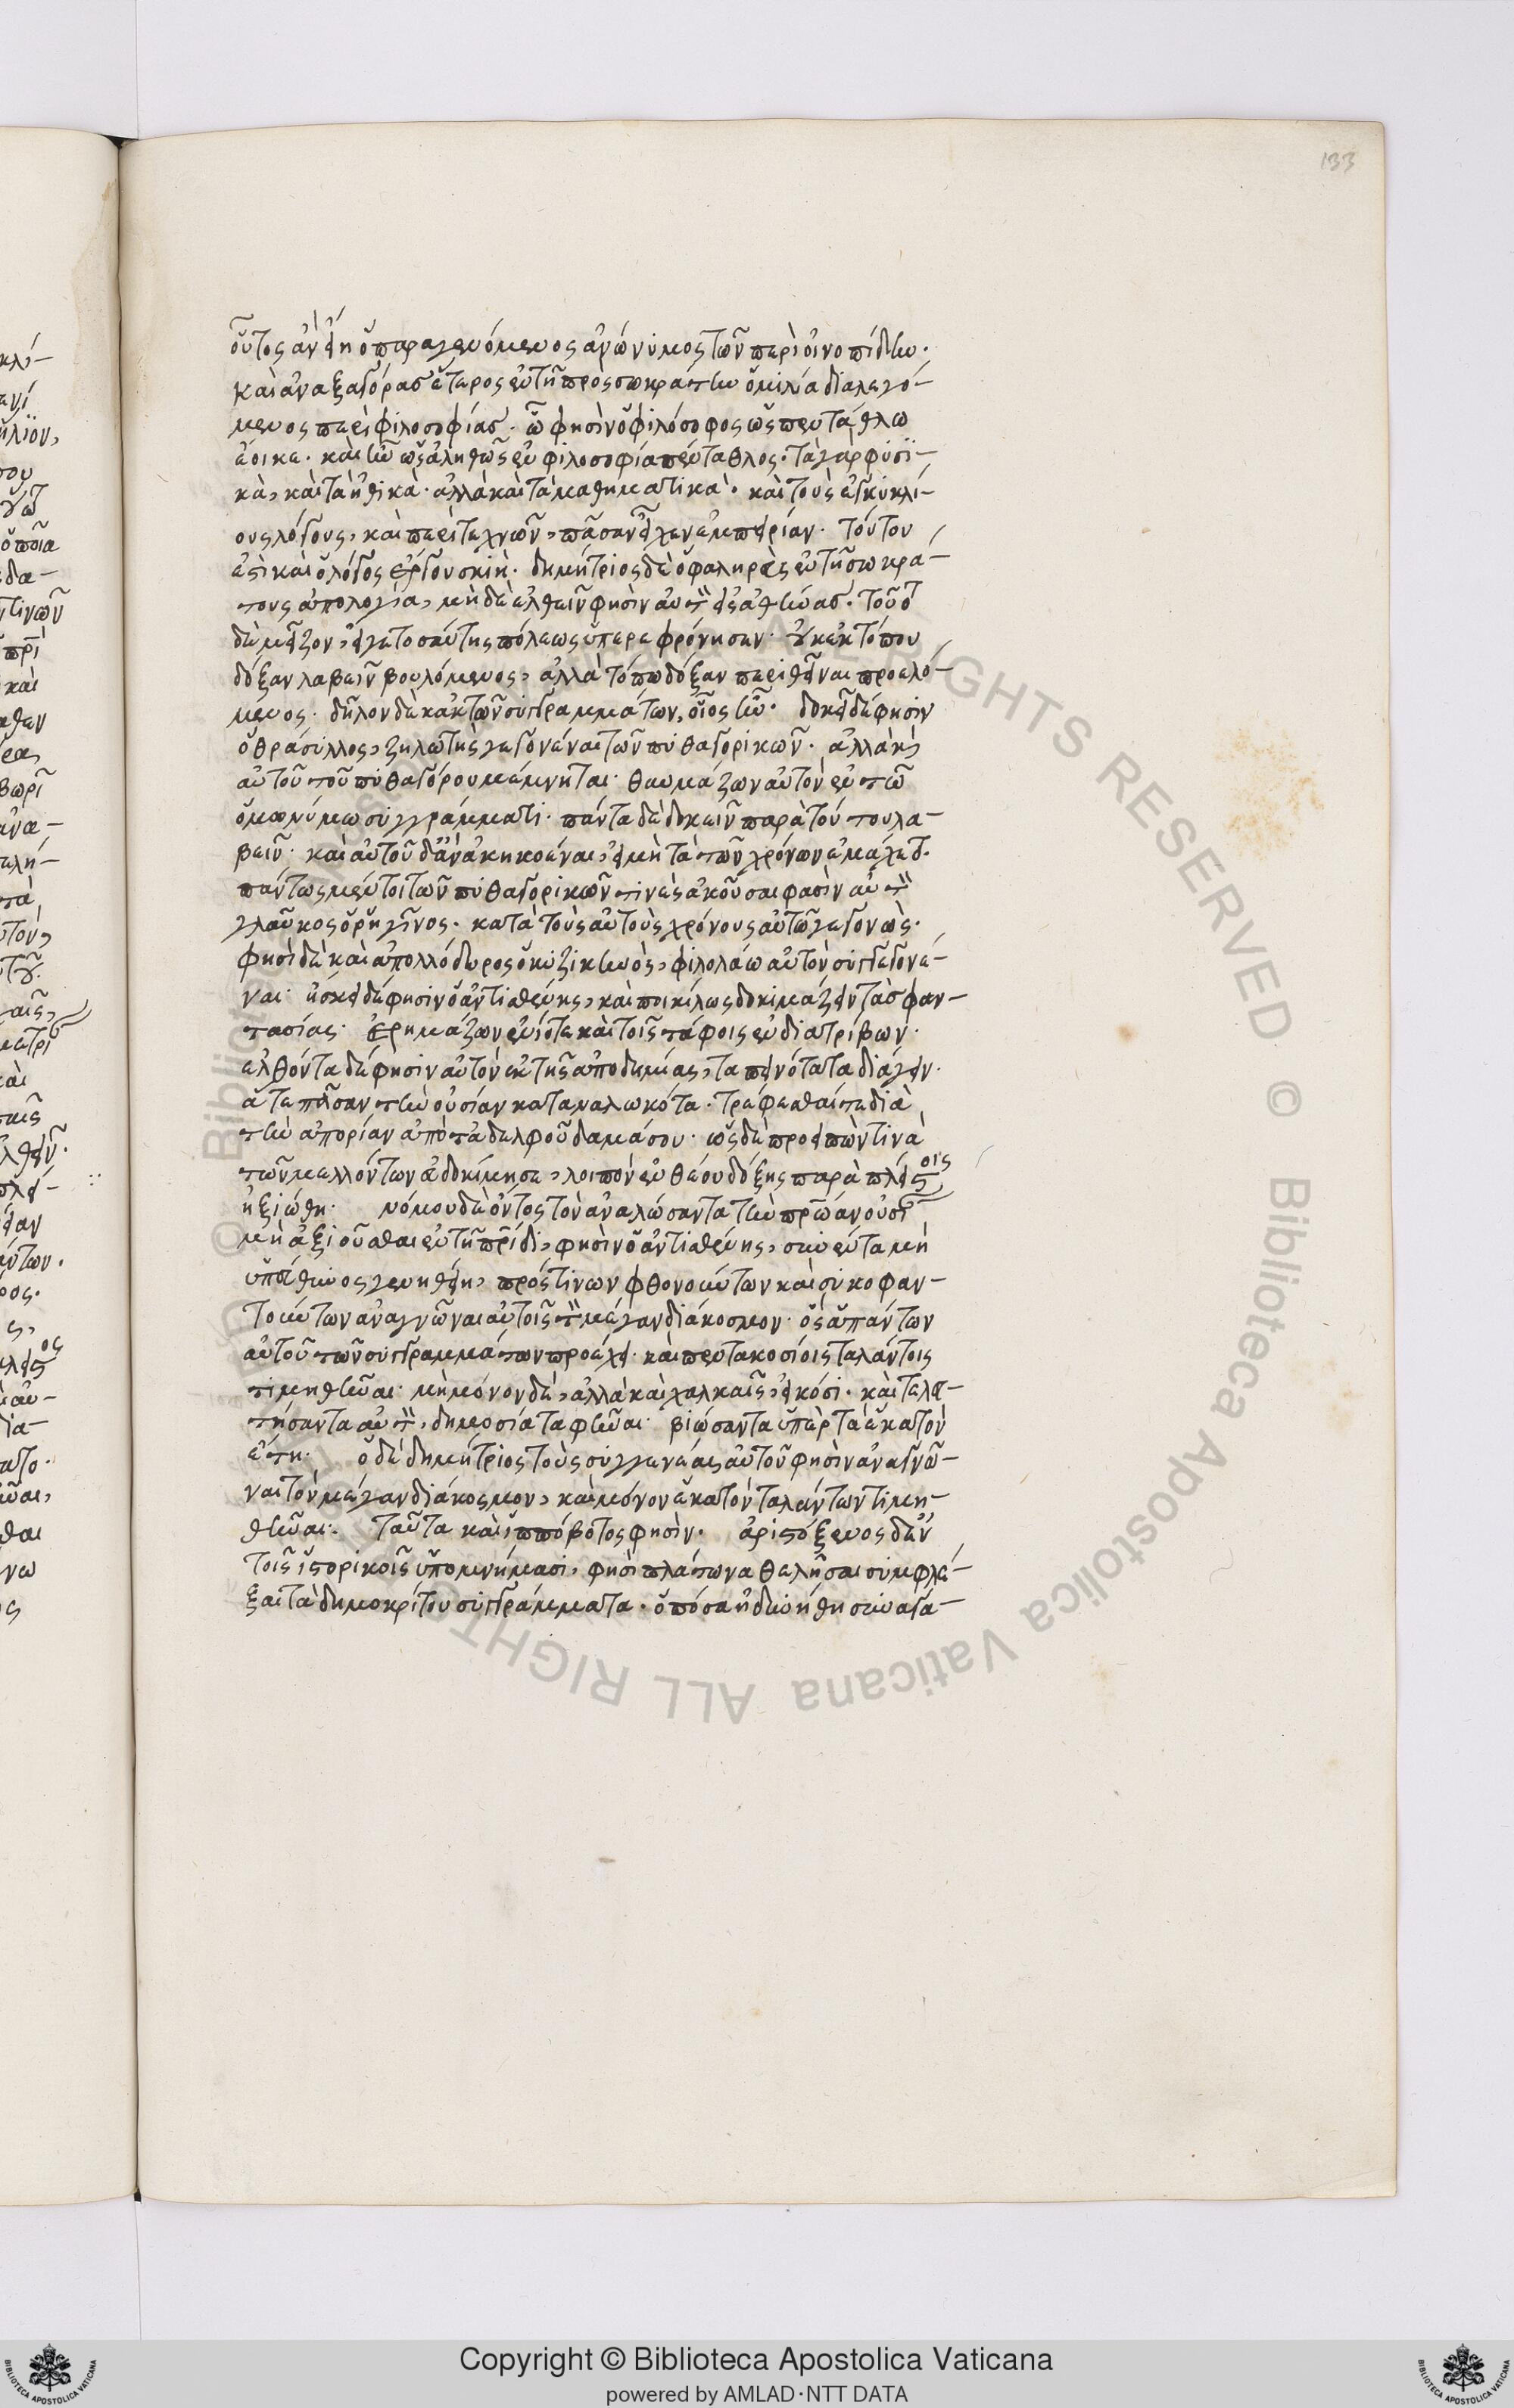 133
οὗτος ἂν εἴη ὁ παραγενόμενος ἀνώνυμος τῶν περὶ οἰνοπίδην.
καὶ ἀναξαγόρας ἕτερος ἐν τῇ πρὸς σωκράτην ὁμιλία διαλεγό-
μενος περὶ φιλοσοφίας. ὧ φησὶν ὁ φιλόσοφος ὡς πεντάθλω
ἔοικε. καὶ ἦν ὡς ἀληθῶς ἐν φιλοσοφία πένταθλος. τὰ γὰρ φυσι-
κὰ, καὶ τὰ ἠθικὰ. ἀλλὰ καὶ τὰ μαθηματικὰ. καὶ τοὺς ἐγκυκλί-
ους λόγους, καὶ περὶ τεχνῶν, πᾶσαν εἶχεν ἐμπειρίαν. τούτου
ἐστὶ καὶ ὁ λόγος ἔργου σκιὴ. δημήτριος δὲ ὁ φαληρεὺς ἐν τῇ σωκρά-
τους ἀπολογία, μὴ δὲ ἐλθεῖν φησὶν αὐτὸν εἰς ἀθήνας. τοῦτ
δὲ μεῖζον, εἴγε τοσαύτης πόλεως ὑπερεφρόνησεν. οὐκ ἐκ τόπου
δόξαν λαβεῖν βουλόμενος, ἀλλὰ τόπω δόξαν περιθεῖναι προελό-
μενος. δῆλον δὲ κἀκ τῶν συγγραμμάτων, οἷος ἦν. δοκεῖ δέ φησὶν
ὁ θράσυλλος, ζηλωτὴς γεγονέναι τῶν πυθαγορικῶν. ἀλλὰ καὶ
αὐτοῦ τοῦ πυθαγόρου μέμνηται. θαυμάζων αὐτὸν ἐν τῶ
ὁμωνύμω συγγράμματι. πάντα δὲ δοκεῖν παρὰ τούτου λα-
βεῖν. καὶ αὐτοῦ δ' ἂν ἀκηκοέναι, εἰ μὴ τὰ τῶν χρόνων ἐμάχετ.
πάντως μέντοι τῶν πυθαγορικῶν τινὸς ἀκοῦσαι φασὶν αὐτὸν
γλαῦκος ὁ ῥηγῖνος. κατὰ τοὺς αὐτοὺς χρόνους αὐτῶ γεγονὼς.
φησὶ δὲ καὶ ἀπολλόδωρος ὁ κυζικηνὸς, φιλολάω αὐτὸν συγγεγονέ-
ναι. ἤσκει δέ φησὶν ὁ ἀντισθένης, καὶ ποικίλως δοκιμάζειν τὰς φαν-
τασίας. ἐρημάζων ἐνίοτε καὶ τοῖς τάφοις ἐνδιατρίβων.
ἐλθόντα δέ φησὶν αὐτὸν ἐκ τῆς ἀποδημίας, ταπεινότατα διάγειν.
ἅτε πᾶσαν τὴν οὐσίαν καταναλωκότα. τρέφεσθαί τε διὰ
τὴν ἀπορίαν ἀπὸ τἀδελφοῦ δαμάσου. ὡς δὲ προειπὼν τινὰ
τῶν μελλόντων εὐδοκίμησε, λοιπὸν ἐνθέου δόξης παρὰ πλείστοις
ἠξιώθη. νόμου δὲ ὄντος τὸν ἀναλώσαντα τὴν πρώαν οὐσί
μὴ ἀξιοῦσθαι ἐν τῇ πρίδι, φησὶν ὁ ἀντισθένης, συνέντα μὴ
ὑπεύθυνος γενηθείη, πρός τινων φθονούντων καὶ συκοφαν-
τούντων ἀναγνῶναι αὐτοῖς τὸν μέγαν διάκοσμον. ὃς ἁπάντων
αὐτοῦ τῶν συγγραμμάτων προέχει. καὶ πεντακοσίοις ταλάντοις
τιμηθῆναι. μὴ μόνον δὲ, ἀλλὰ καὶ χαλκαῖς, εἰκόσι. καὶ τελευ-
τήσαντα αὐτὸν, δημοσία ταφῆναι. βιώσαντα ὑπὲρ τὰ ἑκατὸν
ἔτη. ὁ δὲ δημήτριος τοὺς συγγενέας αὐτοῦ φησὶν ἀναγνῶ-
ναι τὸν μέγαν διάκοσμον, καὶ μόνον ἑκατὸν ταλάντων τιμη-
θῆναι. ταῦτα καὶ ἱππόβοτος φησὶν. ἀριστόξενος δ' ἐν
τοῖς ἱστορικοῖς ὑπομνήμασι, φησὶ πλάτωνα θελῆσαι συμφλέ-
ξαι τὰ δημοκρίτου συγγράμματα. ὁπόσα ἠδυνήθη συναγα-
Copyright © Biblioteca Apostolica Vaticana
powered by AMLAD·NTT DATA